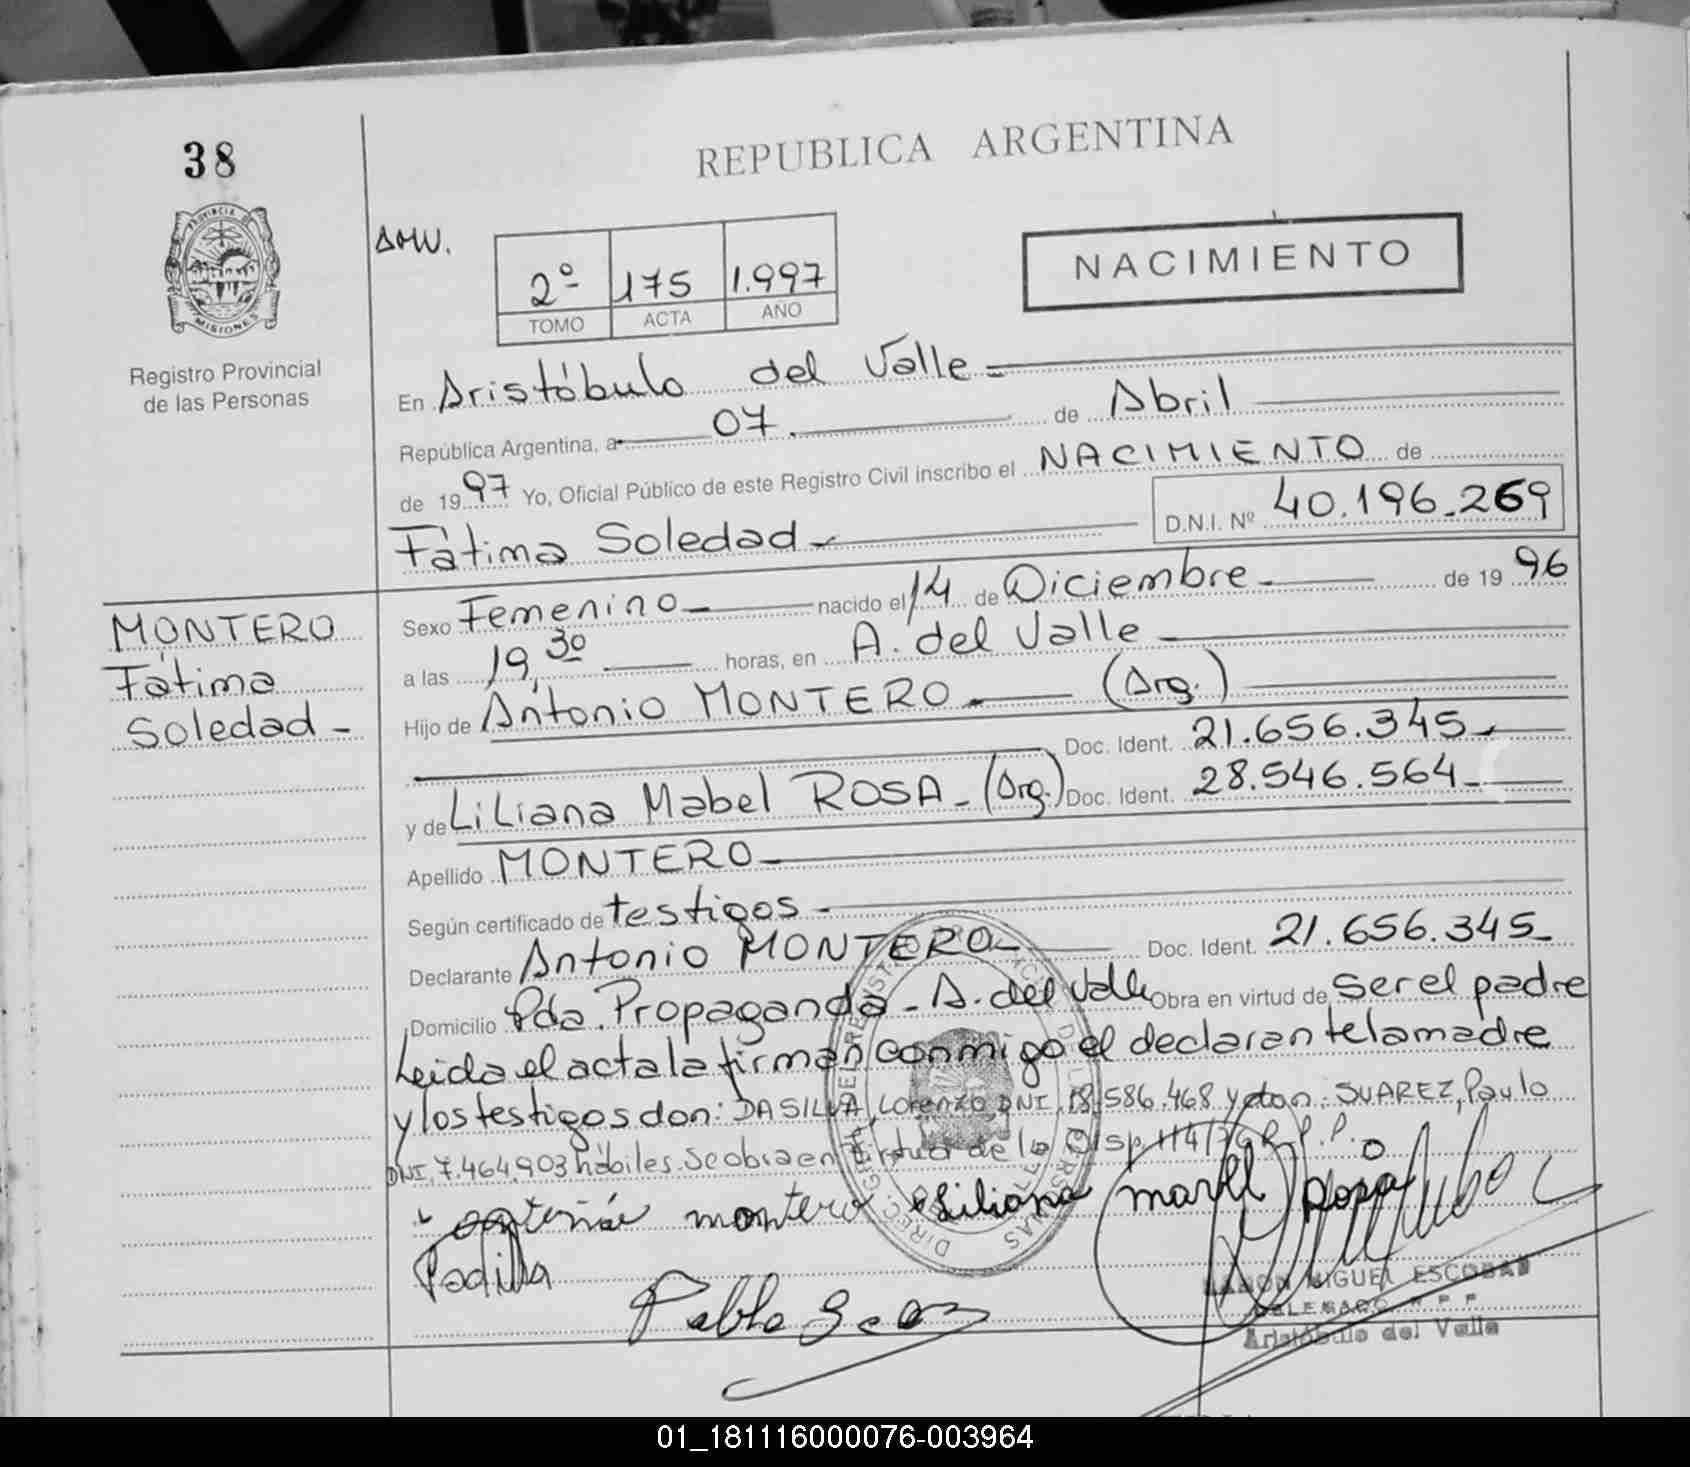 38
REPUBLICA ARGENTINA
PROVINCIA DE
MISIONES
Registro Provincial
de las Personas
2º 175 1.997
TOMO ACTA AÑO
NACIMIENTO
En Aristóbulo del Valle
República Argentina, a 07 de Abril
de 1997 Yo, Oficial Público de este Registro Civil inscribo el NACIMIENTO de
Fátima Soledad D.N.I. Nº 40.196.269
MONTERO
Fátima
Soledad
Sexo Femenino nacido el 14 de Diciembre de 1996
a las 19,30 horas, en A. del Valle
Hijo de Antonio MONTERO (Arg.)
Doc. Ident. 21.656.345
y de Liliana Mabel ROSA (Arg.) Doc. Ident. 28.546.564
Apellido MONTERO
Según certificado de testigos
Declarante Antonio MONTERO Doc. Ident. 21.656.345
Domicilio Pda. Propaganda - A. del Valle Obra en virtud de ser el padre
Leida el acta la firman conmigo el declarante la madre
y los testigos don: DA SILVA, Lorenzo DNI. 18.586.468 y don: SUAREZ, Paulo
DNI. 7.464.903 hábiles. Se obra en virtud de la Disp. 114/ R.P.P.
montero Liliana mavel Rosa
Padilla
Pablo
RAMON MIGUEL ESCOBAR
DELEGADO R P P
Aristóbulo del Valle
01_181116000076-003964